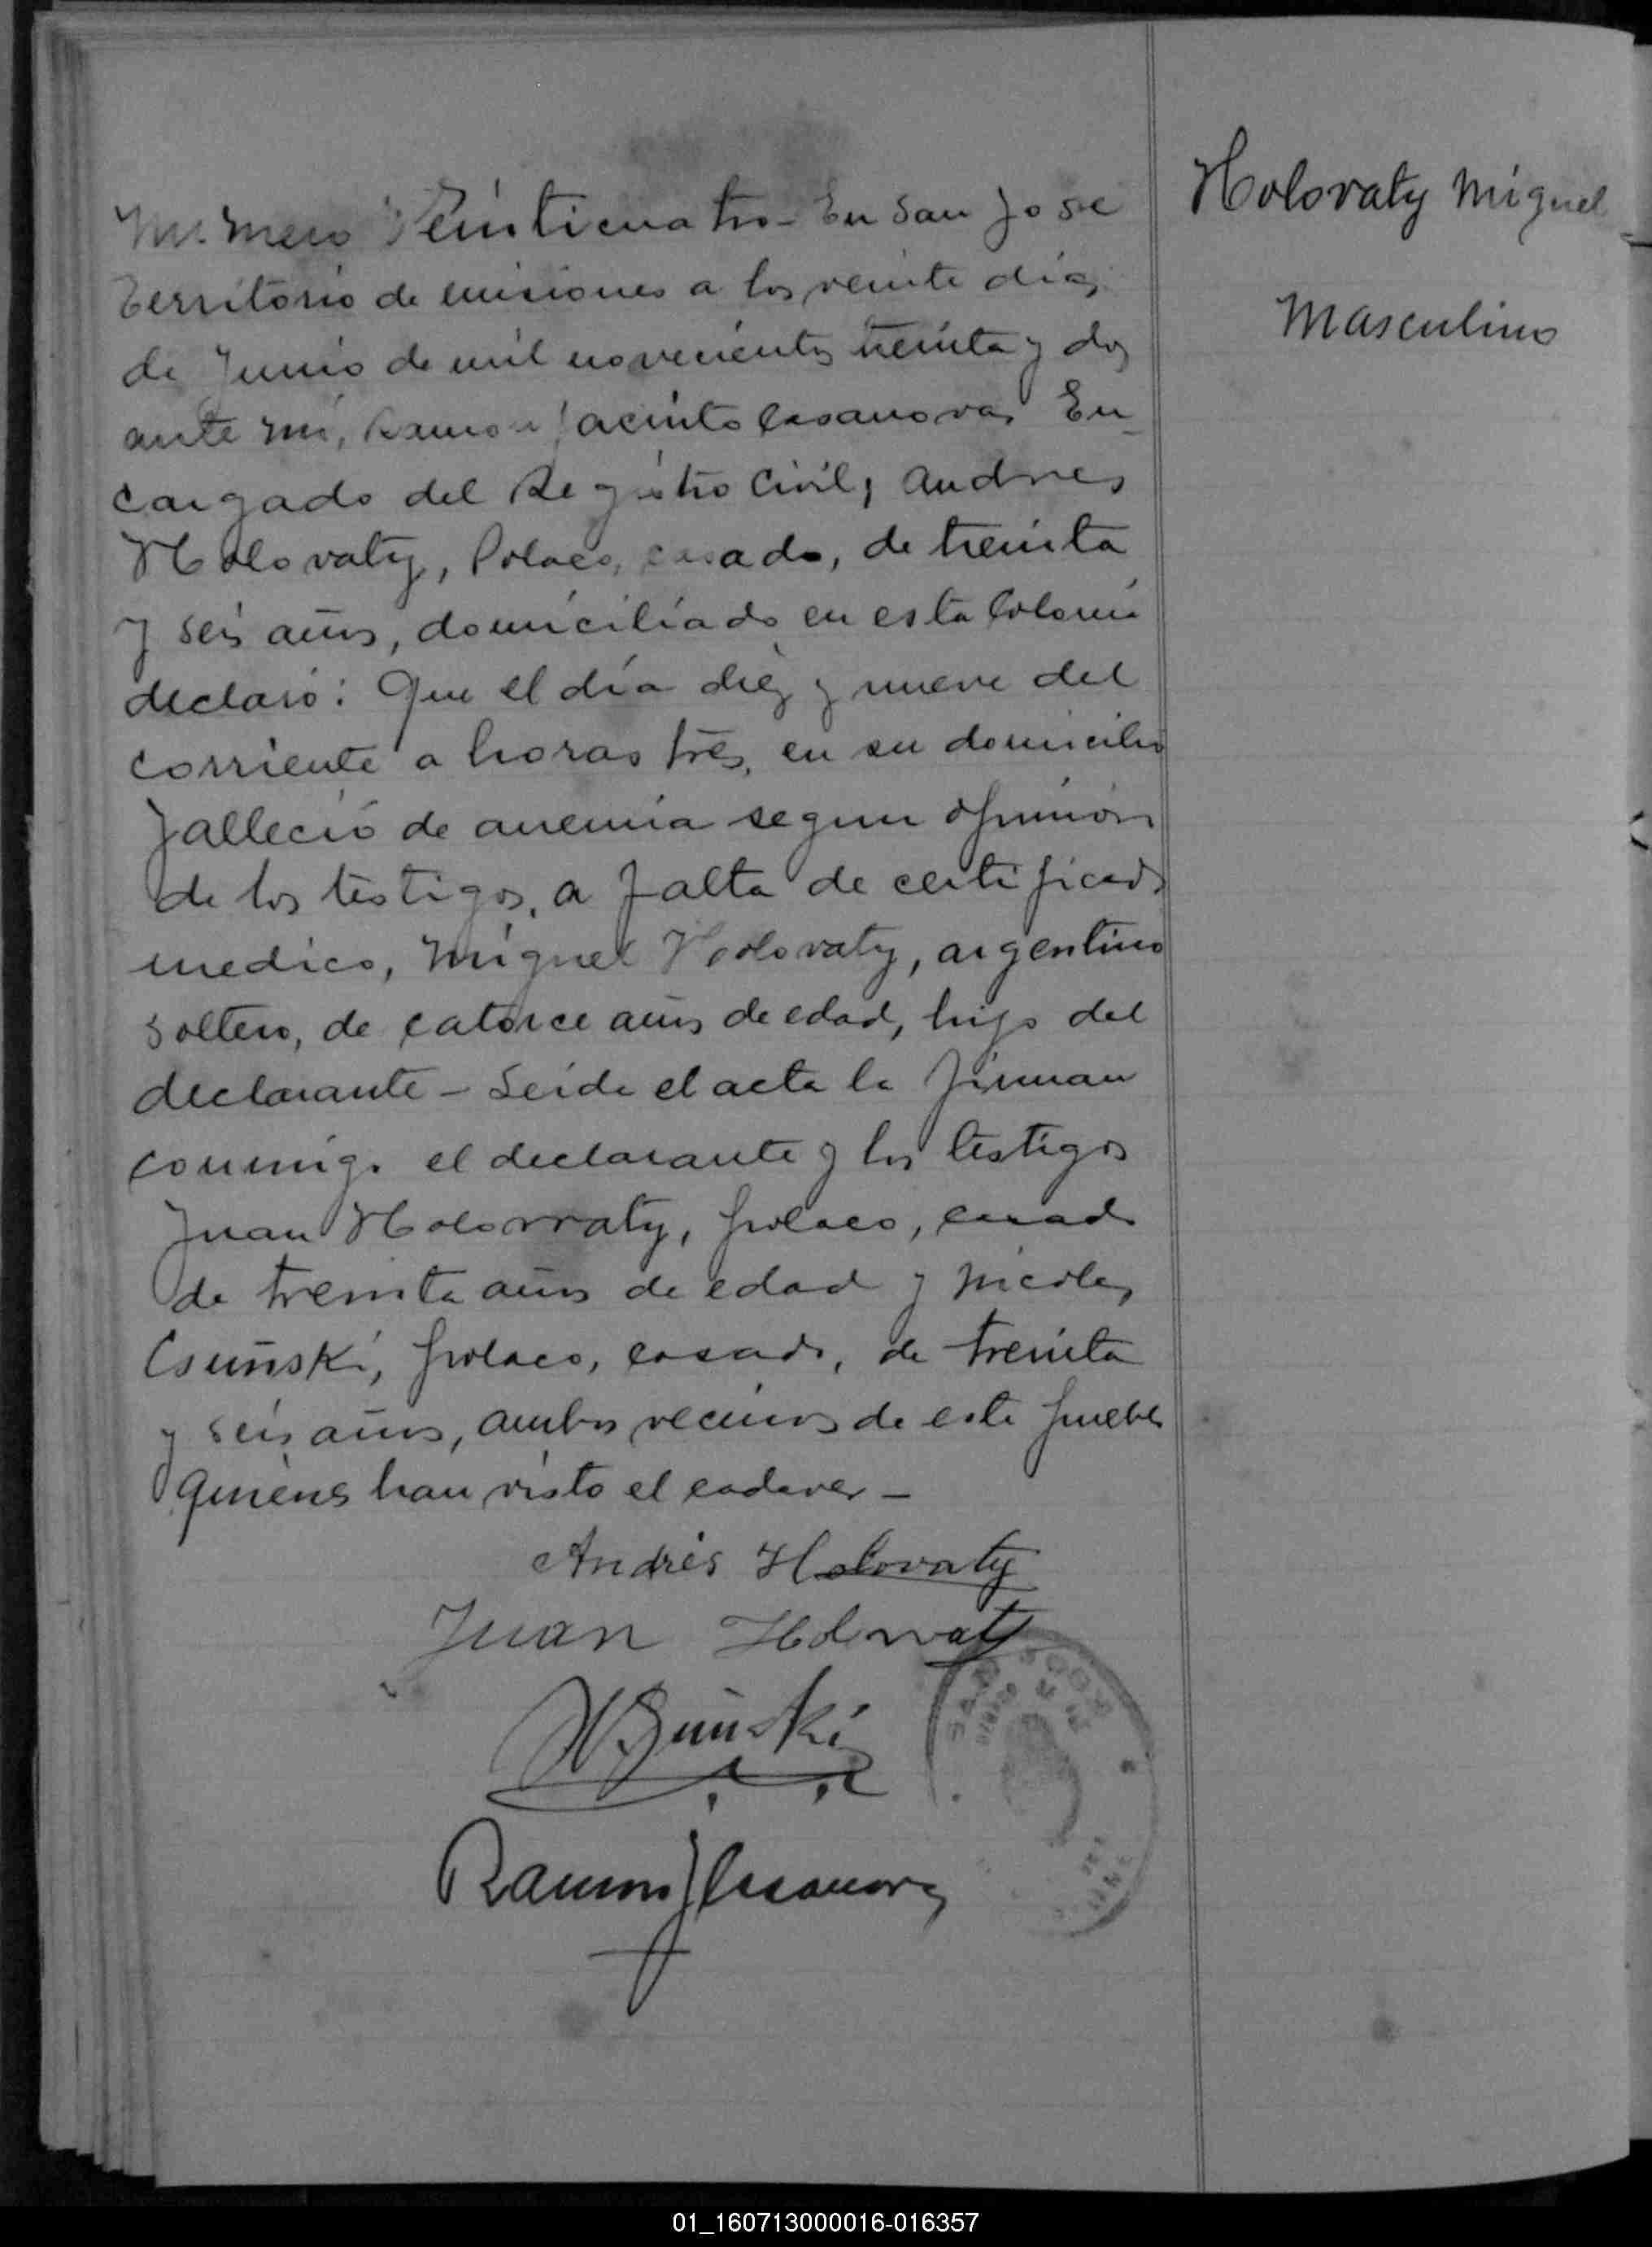 Numero Veinticuatro - En San Jose
Territorio de misiones a los veinte dias
de Junio de mil novecientos treinta y dos
ante mi, Ramon Jacinto Casanova, En
cargado del Registro Civil, Andres
Holovaty, Polaco, casado, de treinta
y seis años, domiciliado en esta Colonia
declaró: Que el día diez y nueve del
corriente a horas tres, en su domicilio
falleció de anemia segun opinión
de los testigos, a falta de certificado
medico, Miguel Holovaty, argentino
soltero, de catorce años de edad, hijo del
declarante - Leida el acta la firman
conmigo el declarante y los testigos
Juan Holovvaty, polaco, casado
de treinta años de edad y Nicolas
Csuñski, polaco, casado, de treinta
y seis años, ambos vecinos de este pueblo
quienes han visto el cadaver -
Andrés Holovaty
Juan Holowaty
Ramon J Casanova
Holovaty Miguel
Masculino
SAN JOSE
01_160713000016-016357